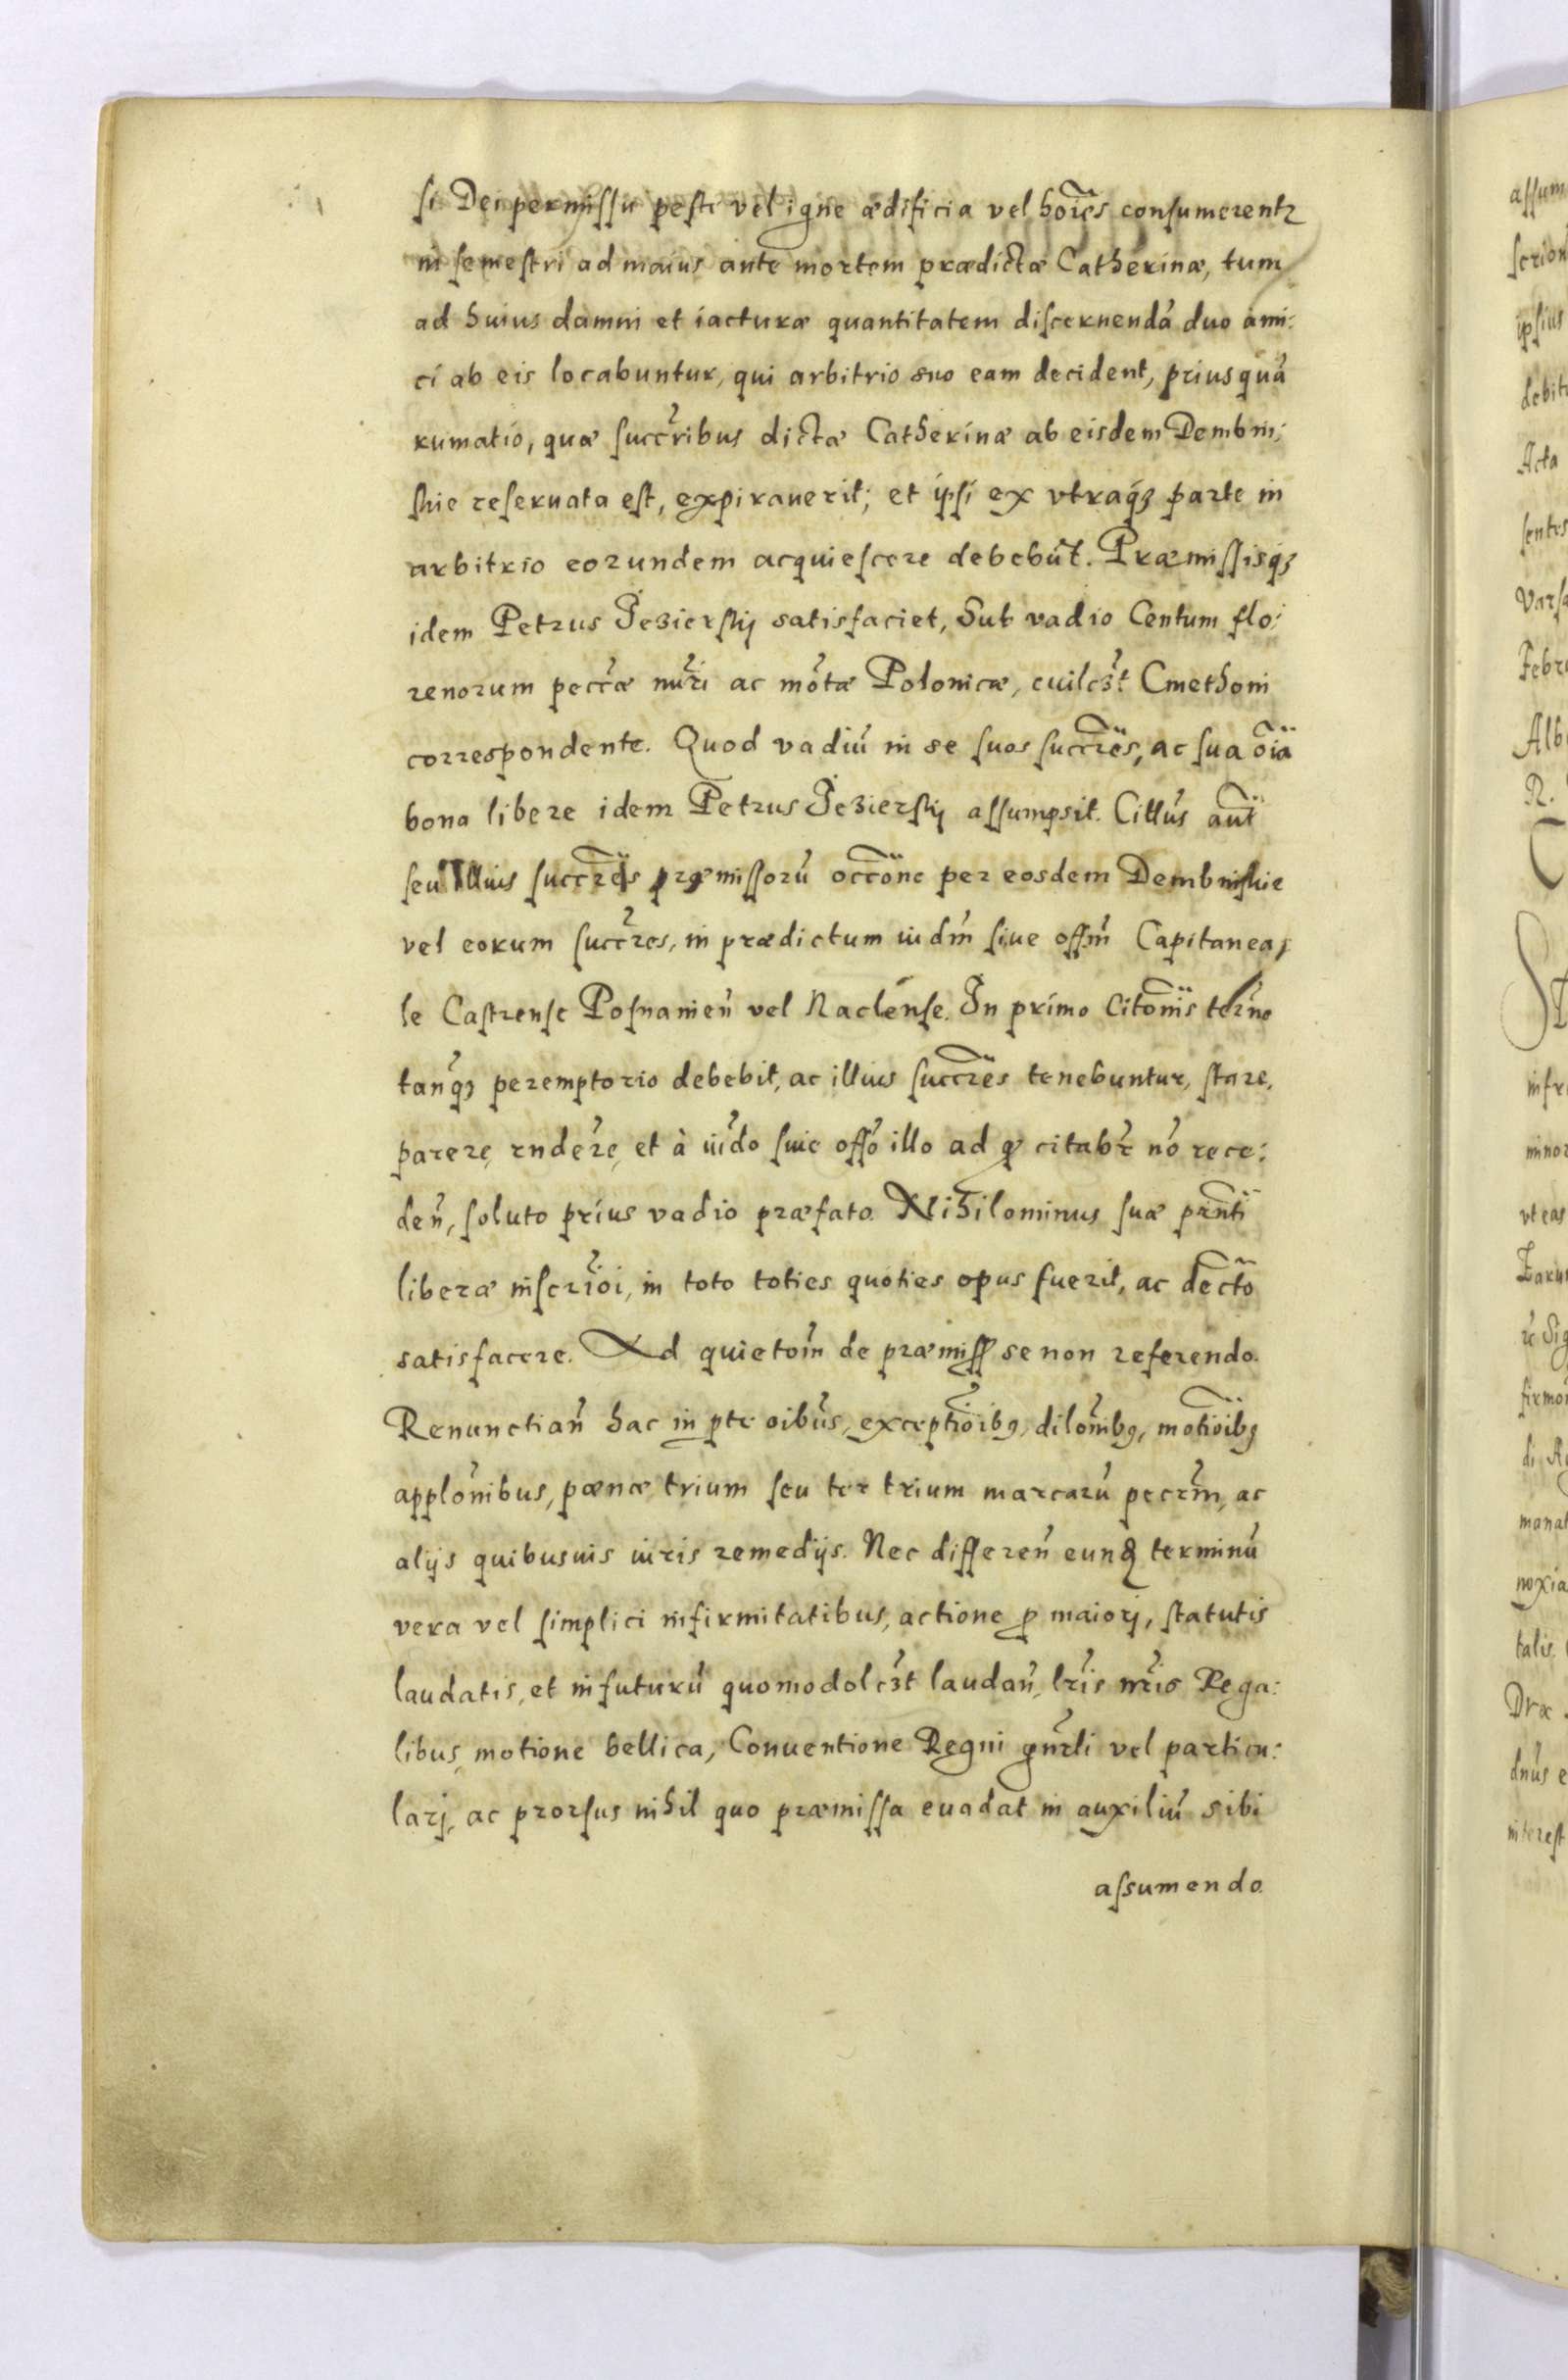 si Dei permissu peste vel igne ædificia vel ho͠ies consumerentꝛ
in semestri ad maius ante mortem prædictæ Catherinæ, tum
ad huius damni et iacturæ quantitatem discernendã duo ami:
ci ab eis locabuntur, qui arbitrio suo eam decident, priusquã
rumatio, quæ succr̃ibus dictæ Catherinæ ab eisdem Dembin:
skie reseruata est, expirauerit; et ipsi ex vtraqꝫ parte in
arbitrio eorundem acquiescere debebũt. Præmissisqꝫ
idem Petrus Jezierskij satisfaciet, Sub vadio Centum flo:
renorum peccæ̃ nũri ac mõtæ Polonicæ, cuilꝫt Cmethoni
correspondente. Quod vadiũ in se suos succr̃es, ac sua oĩa
bona libere idem Petrus Jezierskij assumpsit. Citt̃us aut̃
seu Illius succr̃es præmissorũ occõne per eosdem Dembinskie
vel eorum succr̃es, in prædictum iudm̃ siue offm̃ Capitanea,
le Castrense Posnanien̄ vel Naclense. In primo Citõnis ter̃no
tanqꝫ peremptorio debebit, ac illius succr̃es tenebuntur, stare,
parere, rnder̃e, et à iud̃o siue offõ illo ad qȝ citabr̃ nõ rece:
den̄, soluto prius vadio præfato. Nihilominus suæ prñti
liberæ inscrĩoi, in toto toties quoties opus fuerit, ac dec̃to
satisfacere. Ad quietoñ de præmiss̃ se non referendo.
Renunctian̄ hac in pte oibũs, exceptĩoibꝫ, dilonĩbꝫ, motĩoibꝫ
applonĩbus, pænæ trium seu ter trium marcarũ pecr̃m, ac
alijs quibusuis iuris remedijs. Nec differen̄ eunđ terminũ
vera vel simplici infirmitatibus, actione ꝓ maiorj, statutis
laudatis, et in futurũ quomodolꝫt laudan̄, lr̃is nr̃is Rega:
libus, motione bellica, Conuentione Regni gnr̃li vel particu:
larj, ac prorsus nihil quo præmissa euadat in auxiliũ sibi
assumendo.